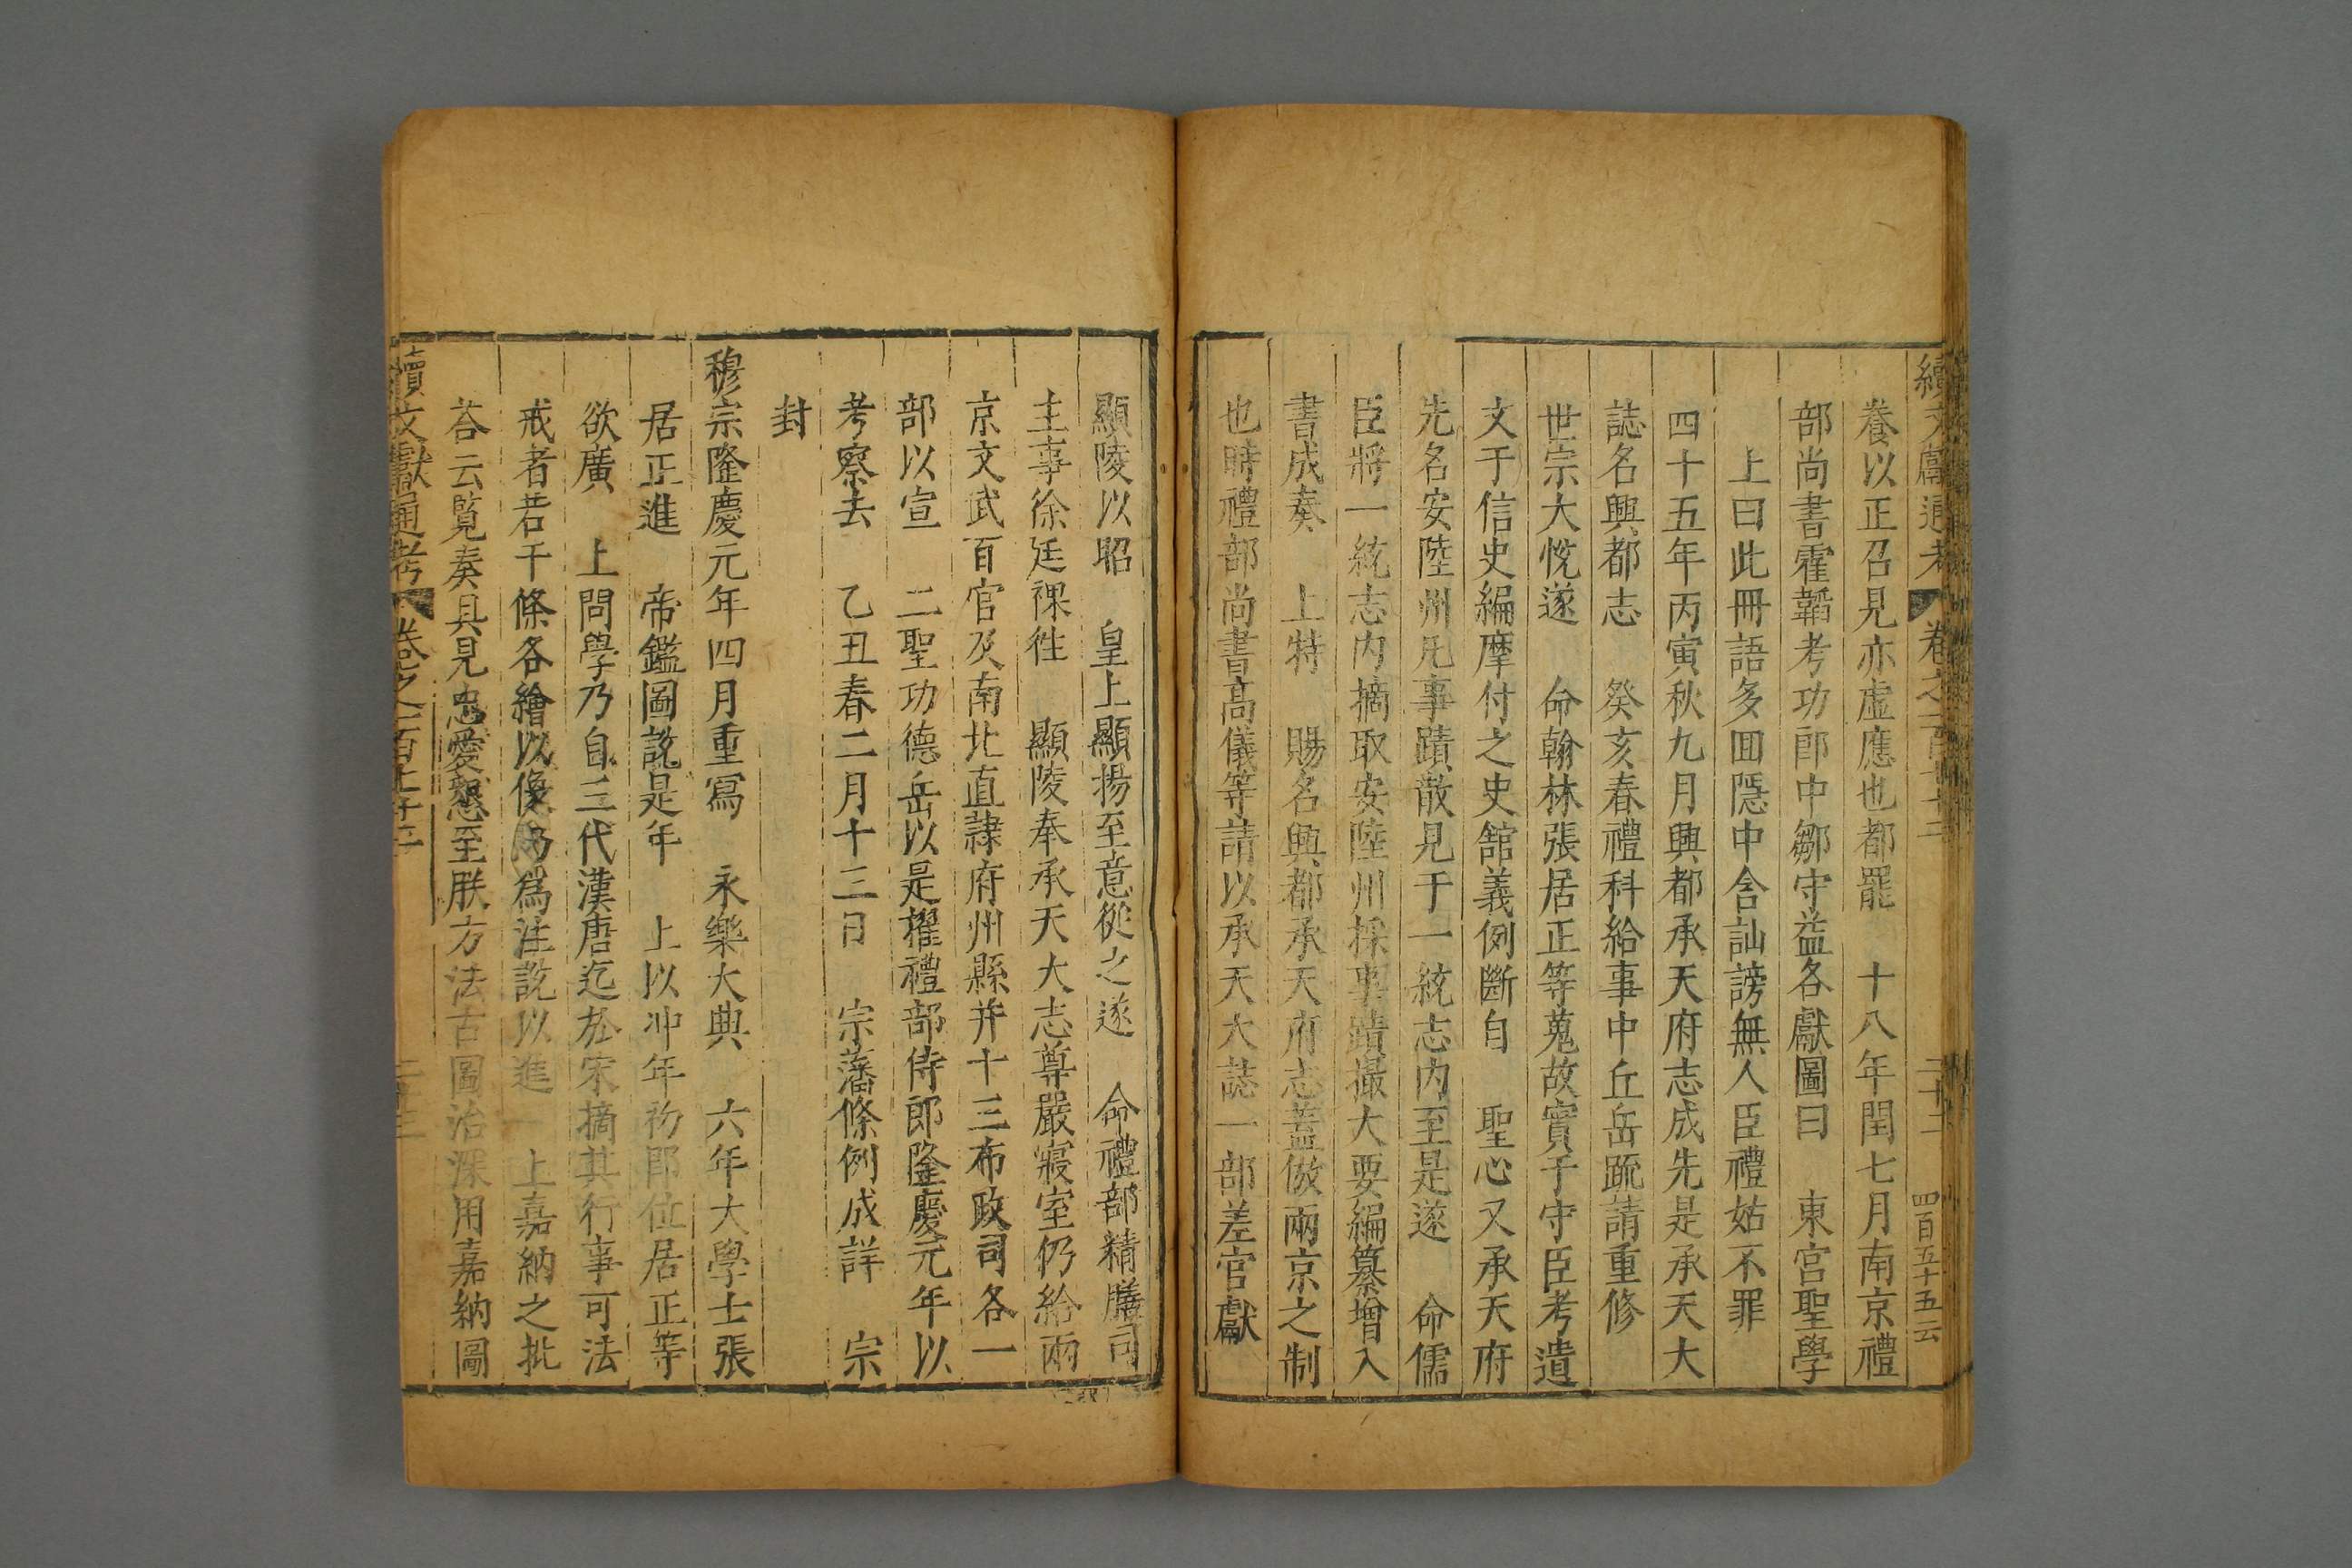 續文獻通考 卷之一百七十二 二十二 四百五十五云
養以正召見亦虛應也都罷 十八年閏七月南京禮
部尚書霍韜考功郎中鄒守益各獻圖曰 東宮聖學
上曰此冊語多回隱中含訕謗無人臣禮姑不罪
四十五年丙寅秋九月興都承天府志成先是承天大
誌名興都志 癸亥春禮科給事中丘岳疏請重修
世宗大悅遂 命翰林張居正等蒐故實于守臣考遺
文于信史編摩付之史館義例斷自 聖心又承天府
先名安陸州凡事蹟散見于一統志内至是遂 命儒
臣將一統志内摘取安陸州採事蹟撮大要編纂增入
書成奏 上特 賜名興都承天府志蓋倣兩京之制
也時禮部尚書高儀等請以承天大誌一部差官獻
顯陵以昭 皇上顯揚至意從之遂 命禮部精膳司
主事徐廷祼徃 顯陵奉承天大志尊嚴寢室仍給兩
京文武百官及南北直隸府州縣并十三布政司各一
部以宣 二聖功德岳以是擢禮部侍郎隆慶元年以
考察去 乙丑春二月十三日 宗藩條例成詳 宗
封
穆宗隆慶元年四月重寫 永樂大典 六年大學士張
居正進 帝鑑圖說是年 上以冲年初即位居正等
欲廣 上問學乃自三代漢唐迄於宋摘其行事可法
戒者若干條各繪以像仍爲注說以進 上嘉納之批
荅云覧奏具見忠愛懇至朕方法古圖治深用嘉納圖
續文獻通考 卷之一百七十二